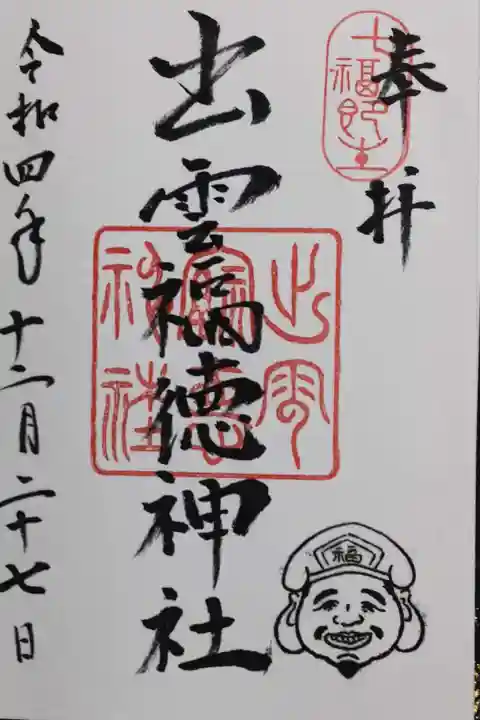 奉拝
出雲福徳神社
出雲
福徳
神社
令和四年十二月二十七日
福